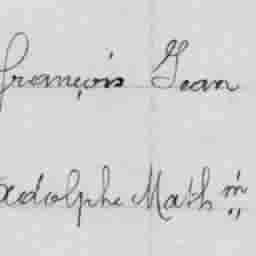 françois Jean
adolphe Math